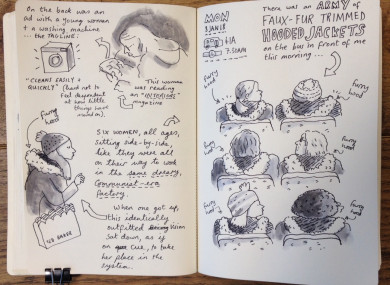 On the back was an
ad with a young woman
+ a washing machine
... the TAGLINE:
"CLEANS EASILY +
QUICKLY" (tried not to
feel despondent
at how little
things have
moved on).
This woman
was reading
an "INTERIORS"
magazine
furry
hood
SIX WOMEN, all ages,
sitting side-by-side,
like they were all
on their way to work
in the same dreary,
Communist-era
factory.
When one got up,
this identically
outfitted Vision
sat down, as if
on cue, to take
her place in the
system.
MON
8 JAN 18
7.50AM
There was an ARMY of
FAUX-FUR TRIMMED
HOODED JACKETS
on the bus in front of me
this morning...
furry
hood
furry
hood
furry
hood
furry
hood
furry
hood
furry
hood